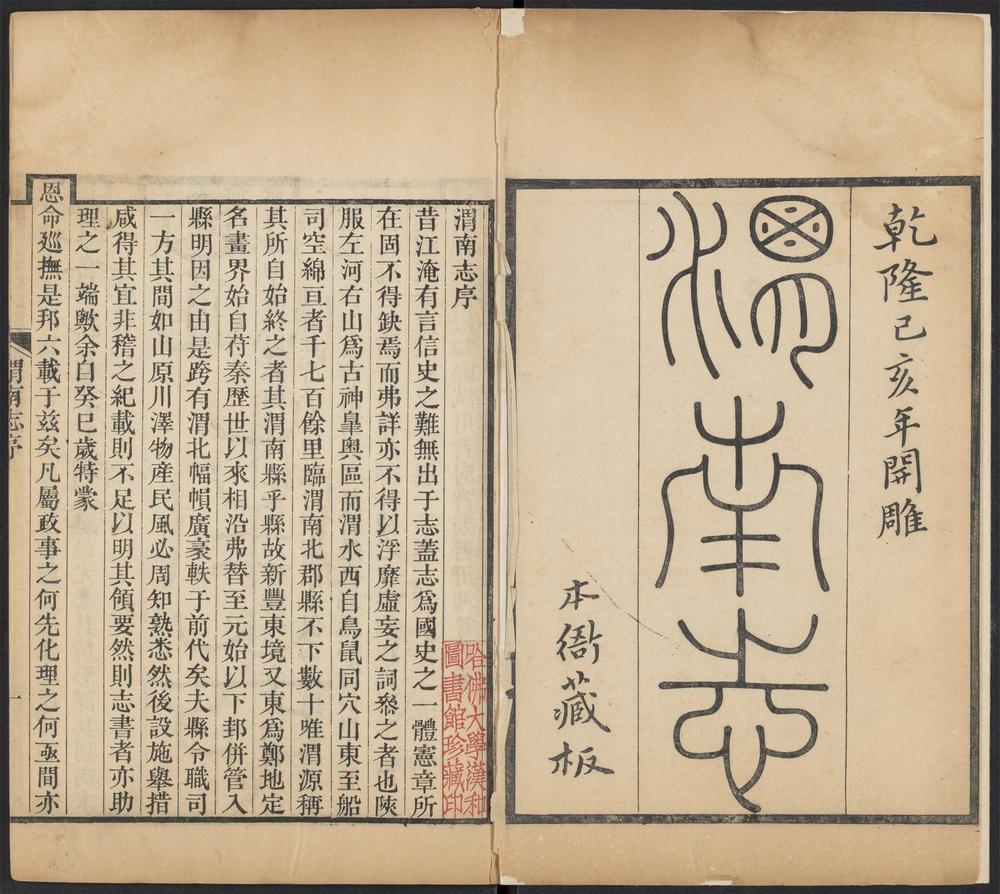 乾隆己亥年開雕
渭南志
本衙藏板
渭南志序
昔江淹有言信史之難無出于志蓋志爲國史之一體憲章所
在固不得缺焉而弗詳亦不得以浮靡虛妄之詞叅之者也陝
服左河右山爲古神臯奧區而渭水西自鳥鼠同穴山東至船
司空綿亘者千七百餘里臨渭南北郡縣不下數十唯渭源稱
其所自始終之者其渭南縣乎縣故新豐東境又東爲鄭地定
名畫界始自苻秦歷世以來相沿弗替至元始以下邽併管入
縣明因之由是跨有渭北幅幀廣袤軼于前代矣夫縣令職司
一方其間如山原川澤物産民風必周知熟悉然後設施舉措
咸得其宜非稽之紀載則不足以明其領要然則志書者亦助
理之一端歟余自癸巳歲特蒙
恩命廵撫是邦六載于茲矣凡屬政事之何先化理之何亟間亦
渭南志序
一
哈佛大學漢和
圖書館珍藏印